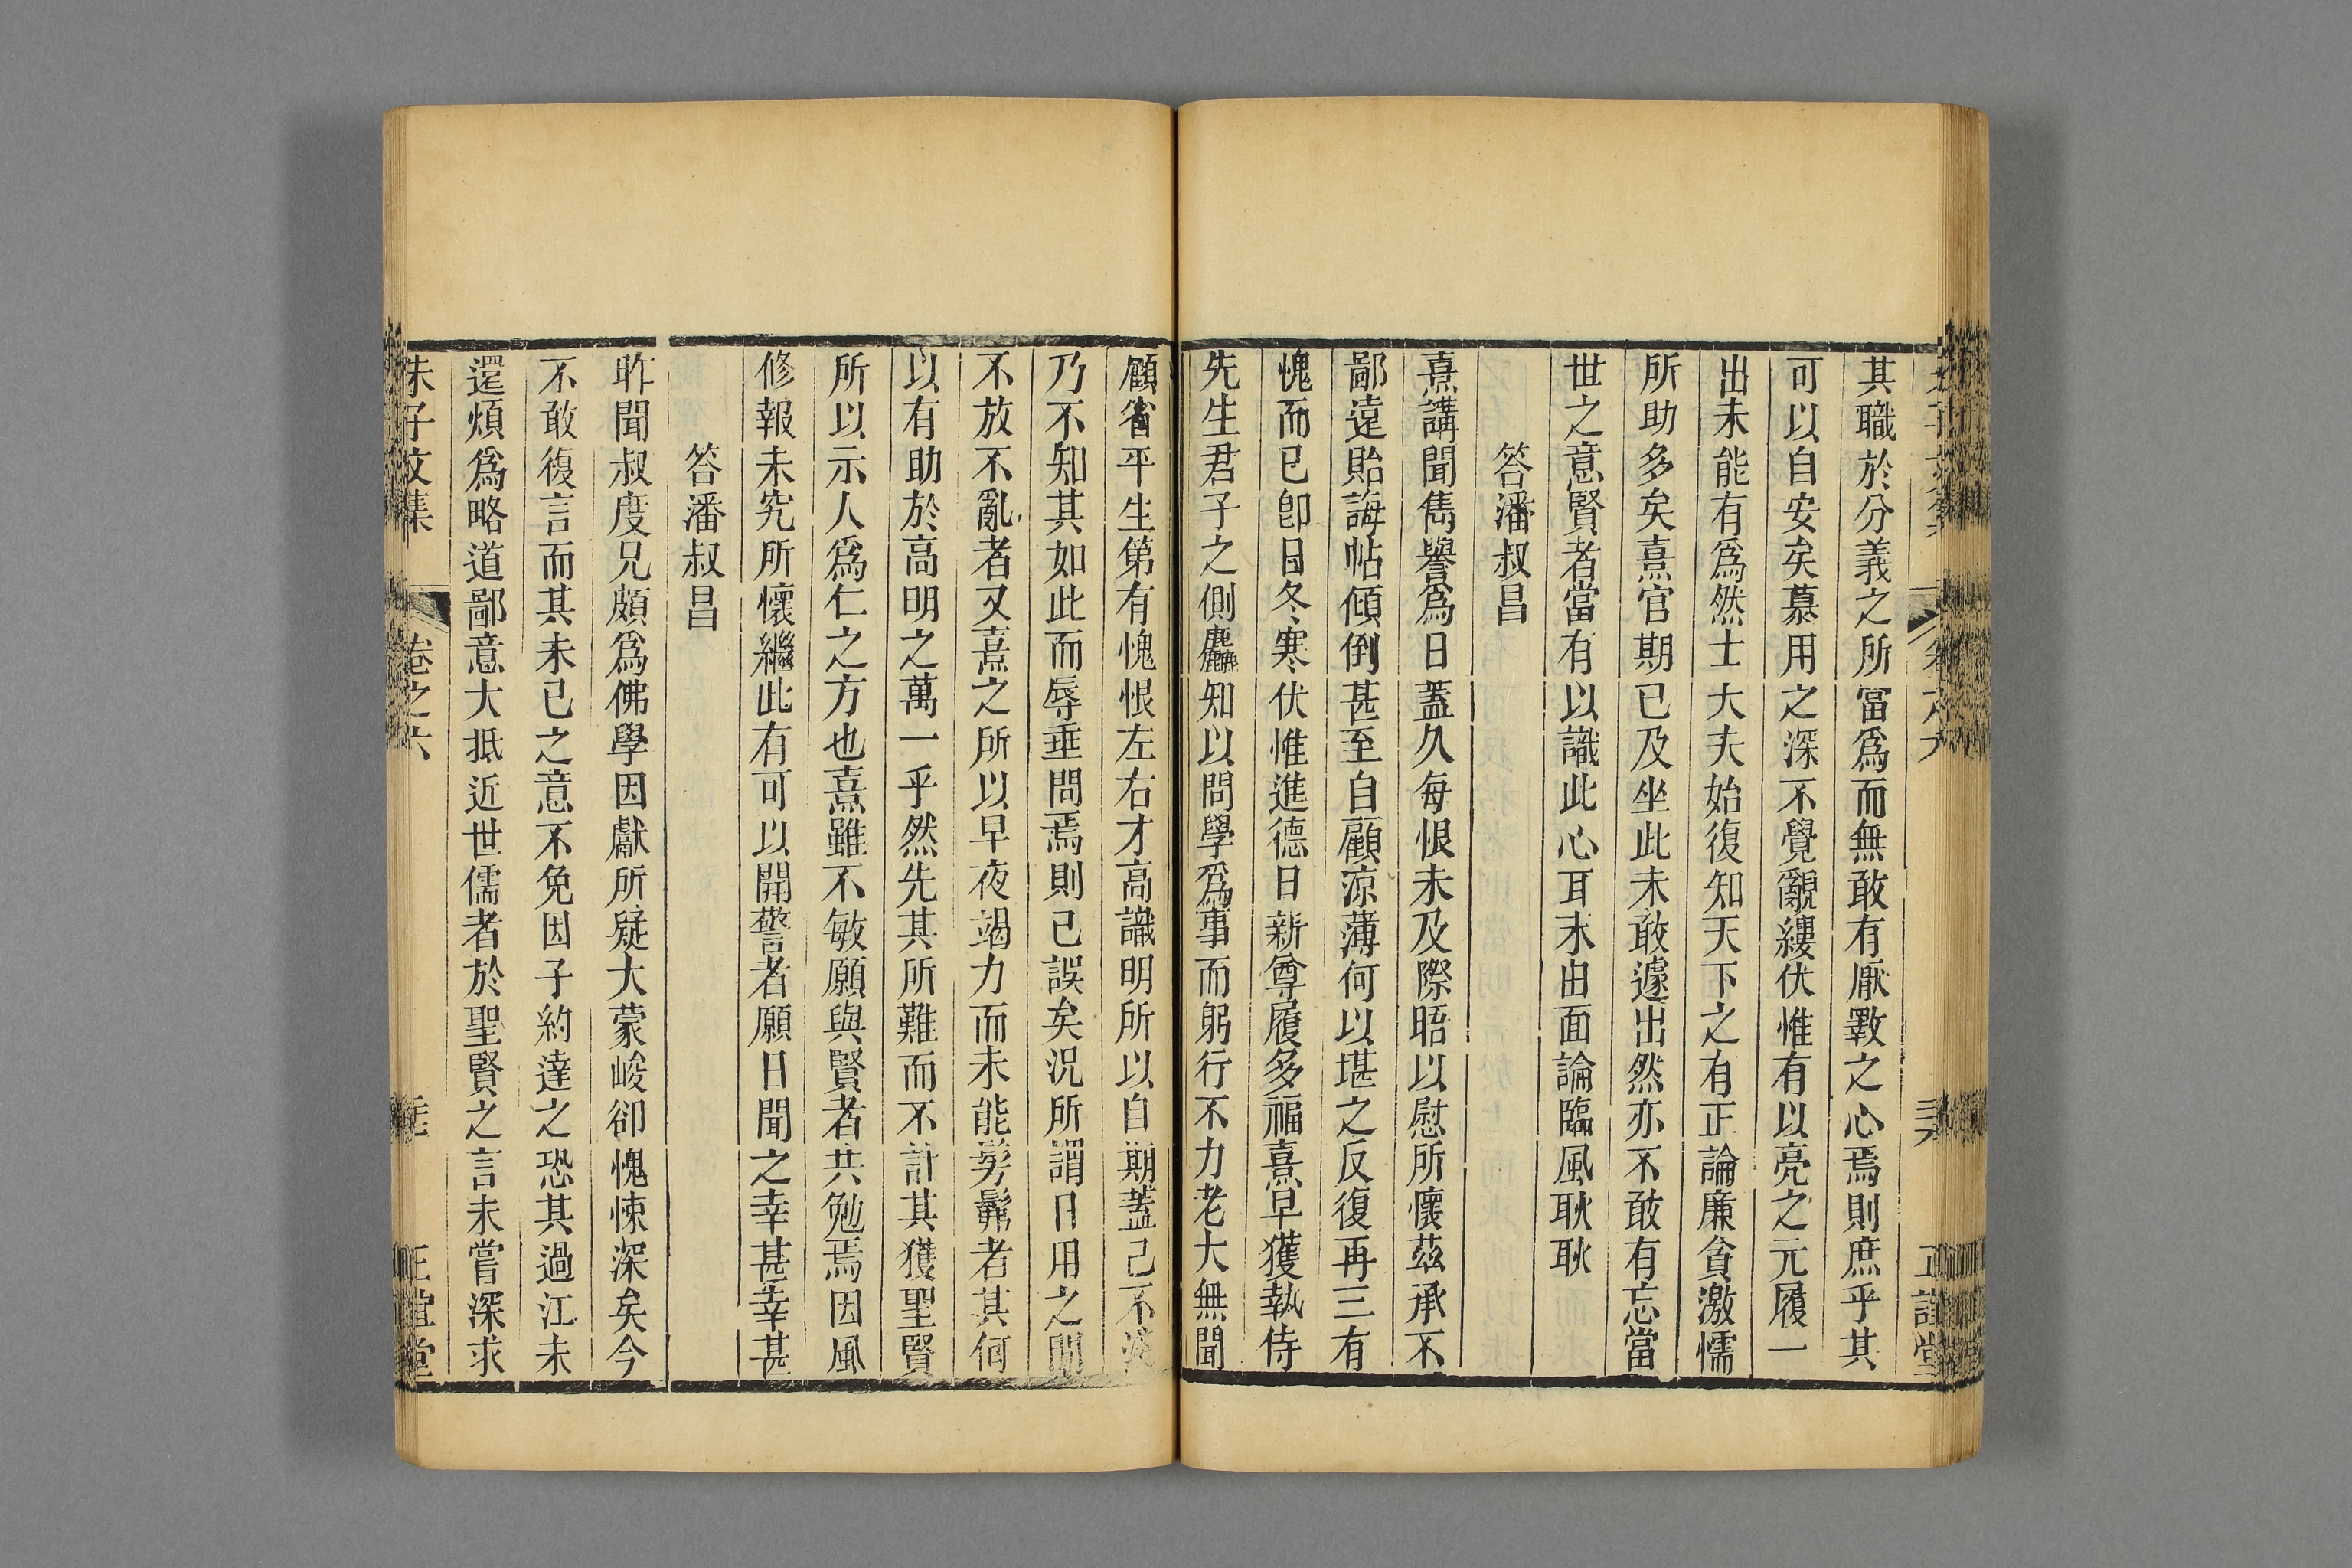 其職於分義之所當爲而無敢有厭斁之心焉則庶乎其
可以自安矣慕用之深不覺覼縷伏惟有以亮之元履一
出未能有爲然士大夫始復知天下之有正論廉貪激懦
所助多矣熹官期已及坐此未敢遽出然亦不敢有忘當
世之意賢者當有以識此心耳末由面論臨風耿耿
答潘叔昌
熹講聞雋譽爲日蓋久每恨未及際晤以慰所懷茲承不
鄙遠貽誨帖傾倒甚至自顧涼薄何以堪之反復再三有
愧而已卽日冬寒伏惟進德日新尊履多福熹早獲執侍
先生君子之側麤知以問學爲事而躬行不力老大無聞
顧省平生第有愧恨左右才高識明所以自期蓋已不淺
乃不知其如此而辱垂問焉則已誤矣況所謂日用之間
不放不亂者又熹之所以早夜竭力而未能髣髴者其何
以有助於高明之萬一乎然先其所難而不計其獲聖賢
所以示人爲仁之方也熹雖不敏願與賢者共勉焉因風
修報未究所懷繼此有可以開警者願日聞之幸甚幸甚
答潘叔昌
昨聞叔度兄頗爲佛學因獻所疑大蒙峻卻愧悚深矣今
不敢復言而其未已之意不免因子約達之恐其過江未
還煩爲略道鄙意大抵近世儒者於聖賢之言未嘗深求
朱子文集 卷之六 正誼堂